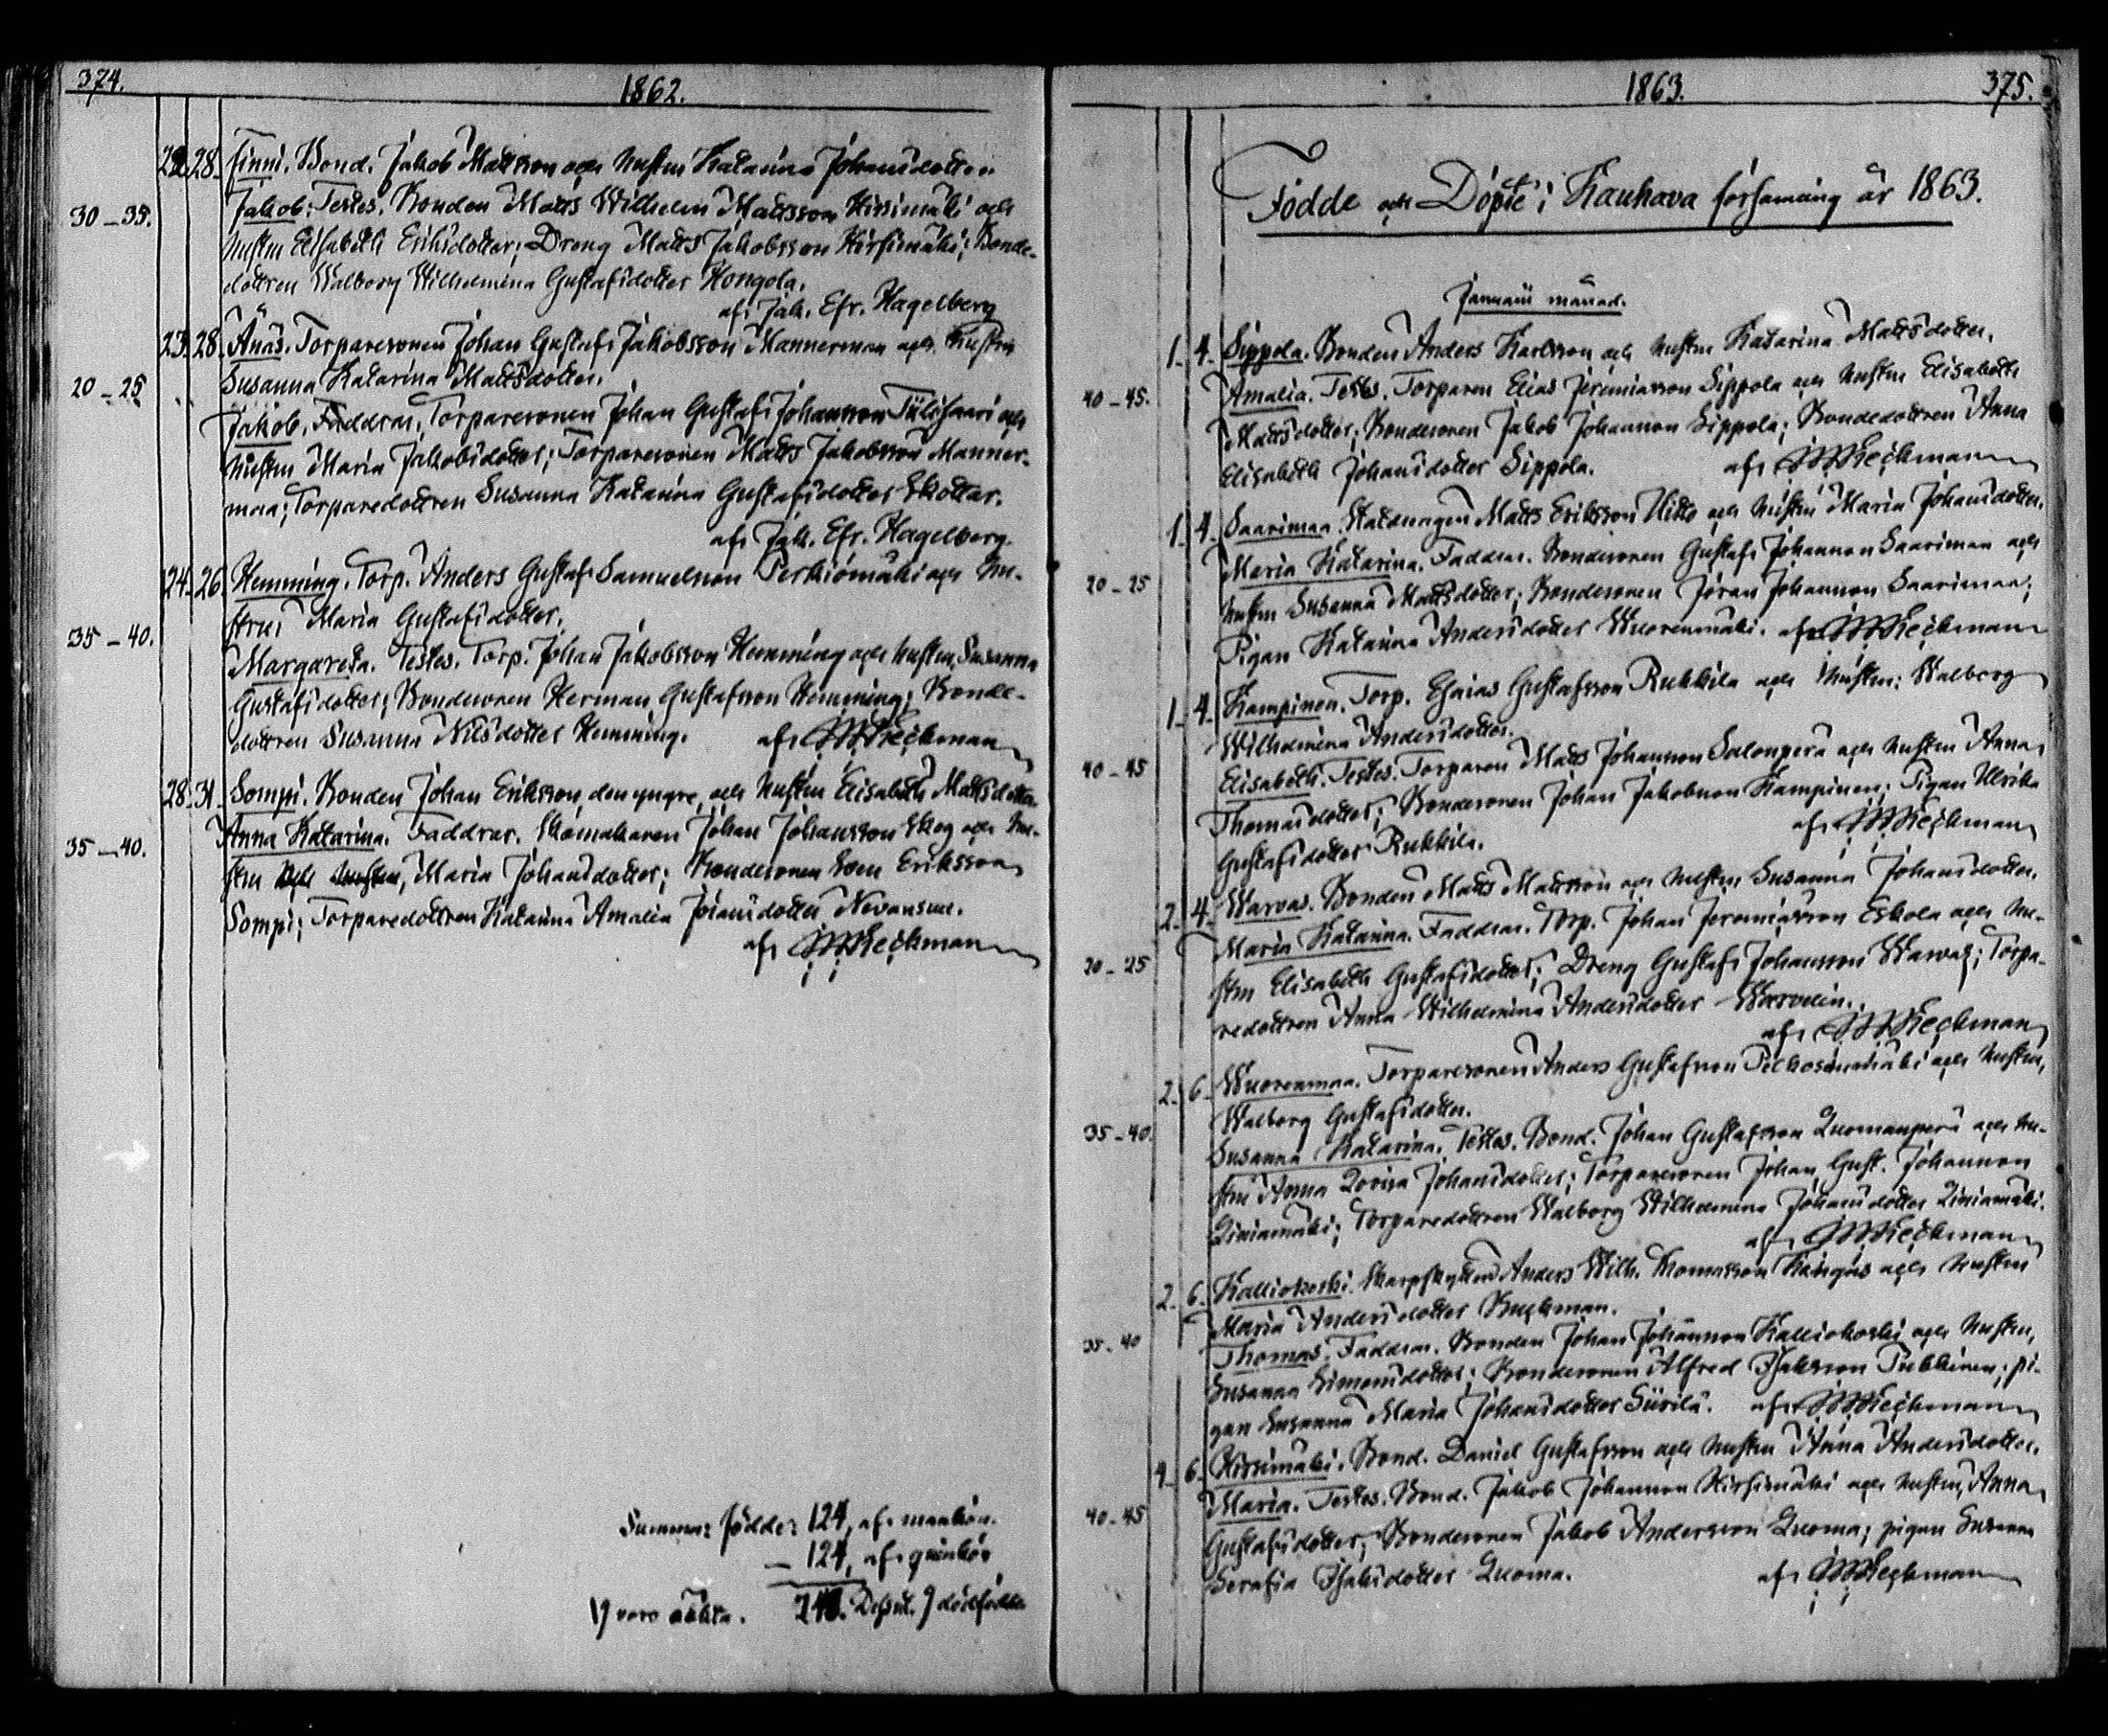 374.
1862.
22. 28. Finni. Bond. Jakob Mattsson och hustru Katarina Johansdotter.
30-35. Jakob. Testes. Bonden Matts Wilhelm Mattsson Hirsimäki och
hustru Elisabeth Eriksdotter; Dreng Matts Jakobsson Hirsimäki; Bonde-
dottren Walborg Wilhelmina Gustafsdotter Hongola.
af: Jak. Efr. Hagelberg
23. 28. Änäs. Torparesonen Johan Gustaf Jakobsson Mannermaa och hustru
20-25 Susanna Katarina Mattsdotter.
Jakob. Faddrar. Torparesonen Johan Gustaf Johansson Tiilisaari och
hustru Maria Jakobsdotter; Torparesonen Matts Jakobsson Manner-
maa; Torparedottren Susanna Katarina Gustafsdotter Skottar.
af: Jak. Efr. Hagelberg.
24. 26. Hemming. Torp. Anders Gustaf Samuelsson Perkiömäki och hu-
stru Maria Gustafsdotter.
35-40. Margareta. Testes. Torp. Johan Jakobsson Hemming och hustru, Susanna
Gustafsdotter; Bondesonen Herman Gustafsson Hemming; Bonde-
dottren Susanna Nilsdotter Hemming. af: Heckman
28. 31. Sompi. Bonden Johan Eriksson den yngre, och hustru Elisabeth Mattsdotter
Anna Katarina. Faddrar. Skomakaren Johan Johansson Skog och hu-
35-40. stru och hustru, Maria Johansdotter; Bondesonen Sven Eriksson
Sompi; Torparedottren Katarina Amalia Johansdotter Nevansuu.
af: Heckman
Summa: födde: 124, af mankön.
— 124, af qvinkön
17 voro oäkta. 248. Dessut. 9 dödfödde
1863. 375.
Födde och Döpte i Kauhava församling år 1863.
Januarii månad.
1. 4. Sippola. Bonden Anders Karlsson och hustru Katarina Mattsdotter.
40-45. Amalia. Testes. Torparen Elias Jeremiasson Sippola och hustru Elisabeth
Mattsdotter; Bondesonen Jakob Johansson Sippola; Bondedottren Anna
Elisabeth Johansdotter Sippola. af: Heckman
1. 4. Saarimaa. Matts Eriksson och hustru Maria Johansdotter.
20-25 Maria Katarina. Faddrar. Bondesonen Gustaf Johansson Saarimaa och
hustru Susanna Mattsdotter; Bondesonen Jöran Johansson Saarimaa;
Pigan Katarina Andersdotter Wuorenmäki. af: Heckman
1. 4. Kampinen. Torp. Esaias Gustafsson Rukkila och hustru: Walborg
Wilhelmina Andersdotter.
40-45 Elisabeth. Testes. Torparen Matts Johansson Salonperä och hustru Anna
Thomasdotter; Bondesonen Johan Jakobsson Kampinen; Pigan Ulrika
Gustafsdotter Rukkila. af: Heckman
2. 4. Warvas. Bonden Matts Mattsson och hustru Susanna Johansdotter.
Maria Katarina. Faddrar. Torp. Johan Jeremiasson Eskola och hu-
20-25 stru Elisabeth Gustafsdotter; Dreng Gustaf Johansson Warvas; Torpa-
redottren Anna Wilhelmina Andersdotter
af: Heckman
2. 6. Wuorenmaa. Torparesonen Anders Gustafsson och hustru,
Walborg Gustafsdotter.
35-40. Susanna Katarina. Testes. Bond. Johan Gustafsson Luomanperä och hu-
stru Anna Lovisa Johansdotter; Torparesonen Johan Gust. Johansson
Liniamäki; Torparedottren Walborg Wilhelmina Johansdotter Liniamäki.
af: Heckman
2. 6. Kalliokoski. Skarpskytten Anders Wilh. Thomasson Kangas och hustru
Maria Andersdotter
35-40 Thomas. Faddrar. Bonden Johan Johansson Kalliokoski och hustru,
Susanna Simonsdotter; Bondesonen Alfred Isaksson pi-
gan Susanna Maria Johansdotter Siirilä. af: Heckman
4. 6. Hirsimäki. Bond. Daniel Gustafsson och hustru Anna Andersdotter.
40-45 Maria. Testes. Bond. Jakob Johansson Hirsimäki och hustru, Anna
Gustafsdotter; Bondesonen Jakob Andersson Luoma; pigan Susanna
Serafia Isaksdotter Luoma. af: Heckman